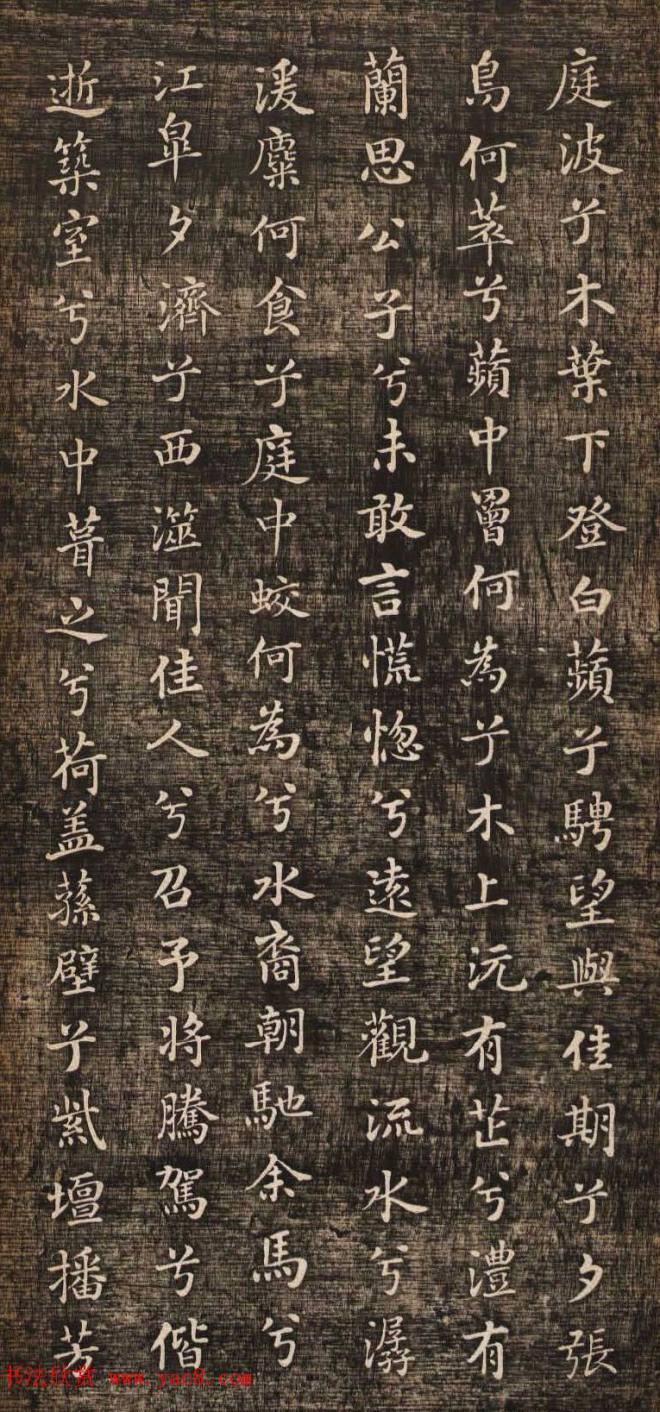 庭波兮木葉下登白蘋兮騁望與佳期兮夕張
鳥何萃兮蘋中罾何為兮木上沅有芷兮澧有
蘭思公子兮未敢言慌惚兮遠望觀流水兮潺
湲麋何食兮庭中蛟何為兮水裔朝馳余馬兮
江皐夕濟兮西澨聞佳人兮召予将騰駕兮偕
逝築室兮水中葺之兮荷盖蓀壁兮紫壇播芳
书法欣赏 www.yac8.com